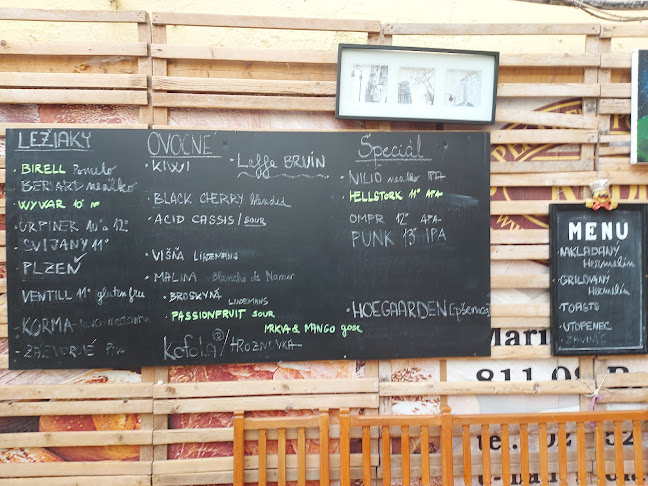 LEŽIAKY
BIRELL Pomelo
WYWAR 10°
URPINER 10° a 12°
SVIJANY 11°
PLZEŇ
VENTILL 11° gluten free
KORMA
ZÁZVOROVÉ Pivo
OVOCNÉ
KIWI
Leffe BRUIN
BLACK CHERRY
ACID CASSIS / SOUR
VIŠŇA LINDEMANS
MALINA Blanche de Namur
BROSKYŇA LINDEMANS
PASSIONFRUIT SOUR
MRKVA & MANGO gose
Kofola ® / HROZNOVKA
Špeciál
NILIO nealko IPA
HELLSTORK 11° APA
12° APA
PUNK 13° IPA
HOEGAARDEN (pšenica)
MENU
NAKLADANÝ
Hermelín
GRILOVANÝ
Hermelín
TOASTY
UTOPENEC
ZAVINÁČ
811 08
tel. 02